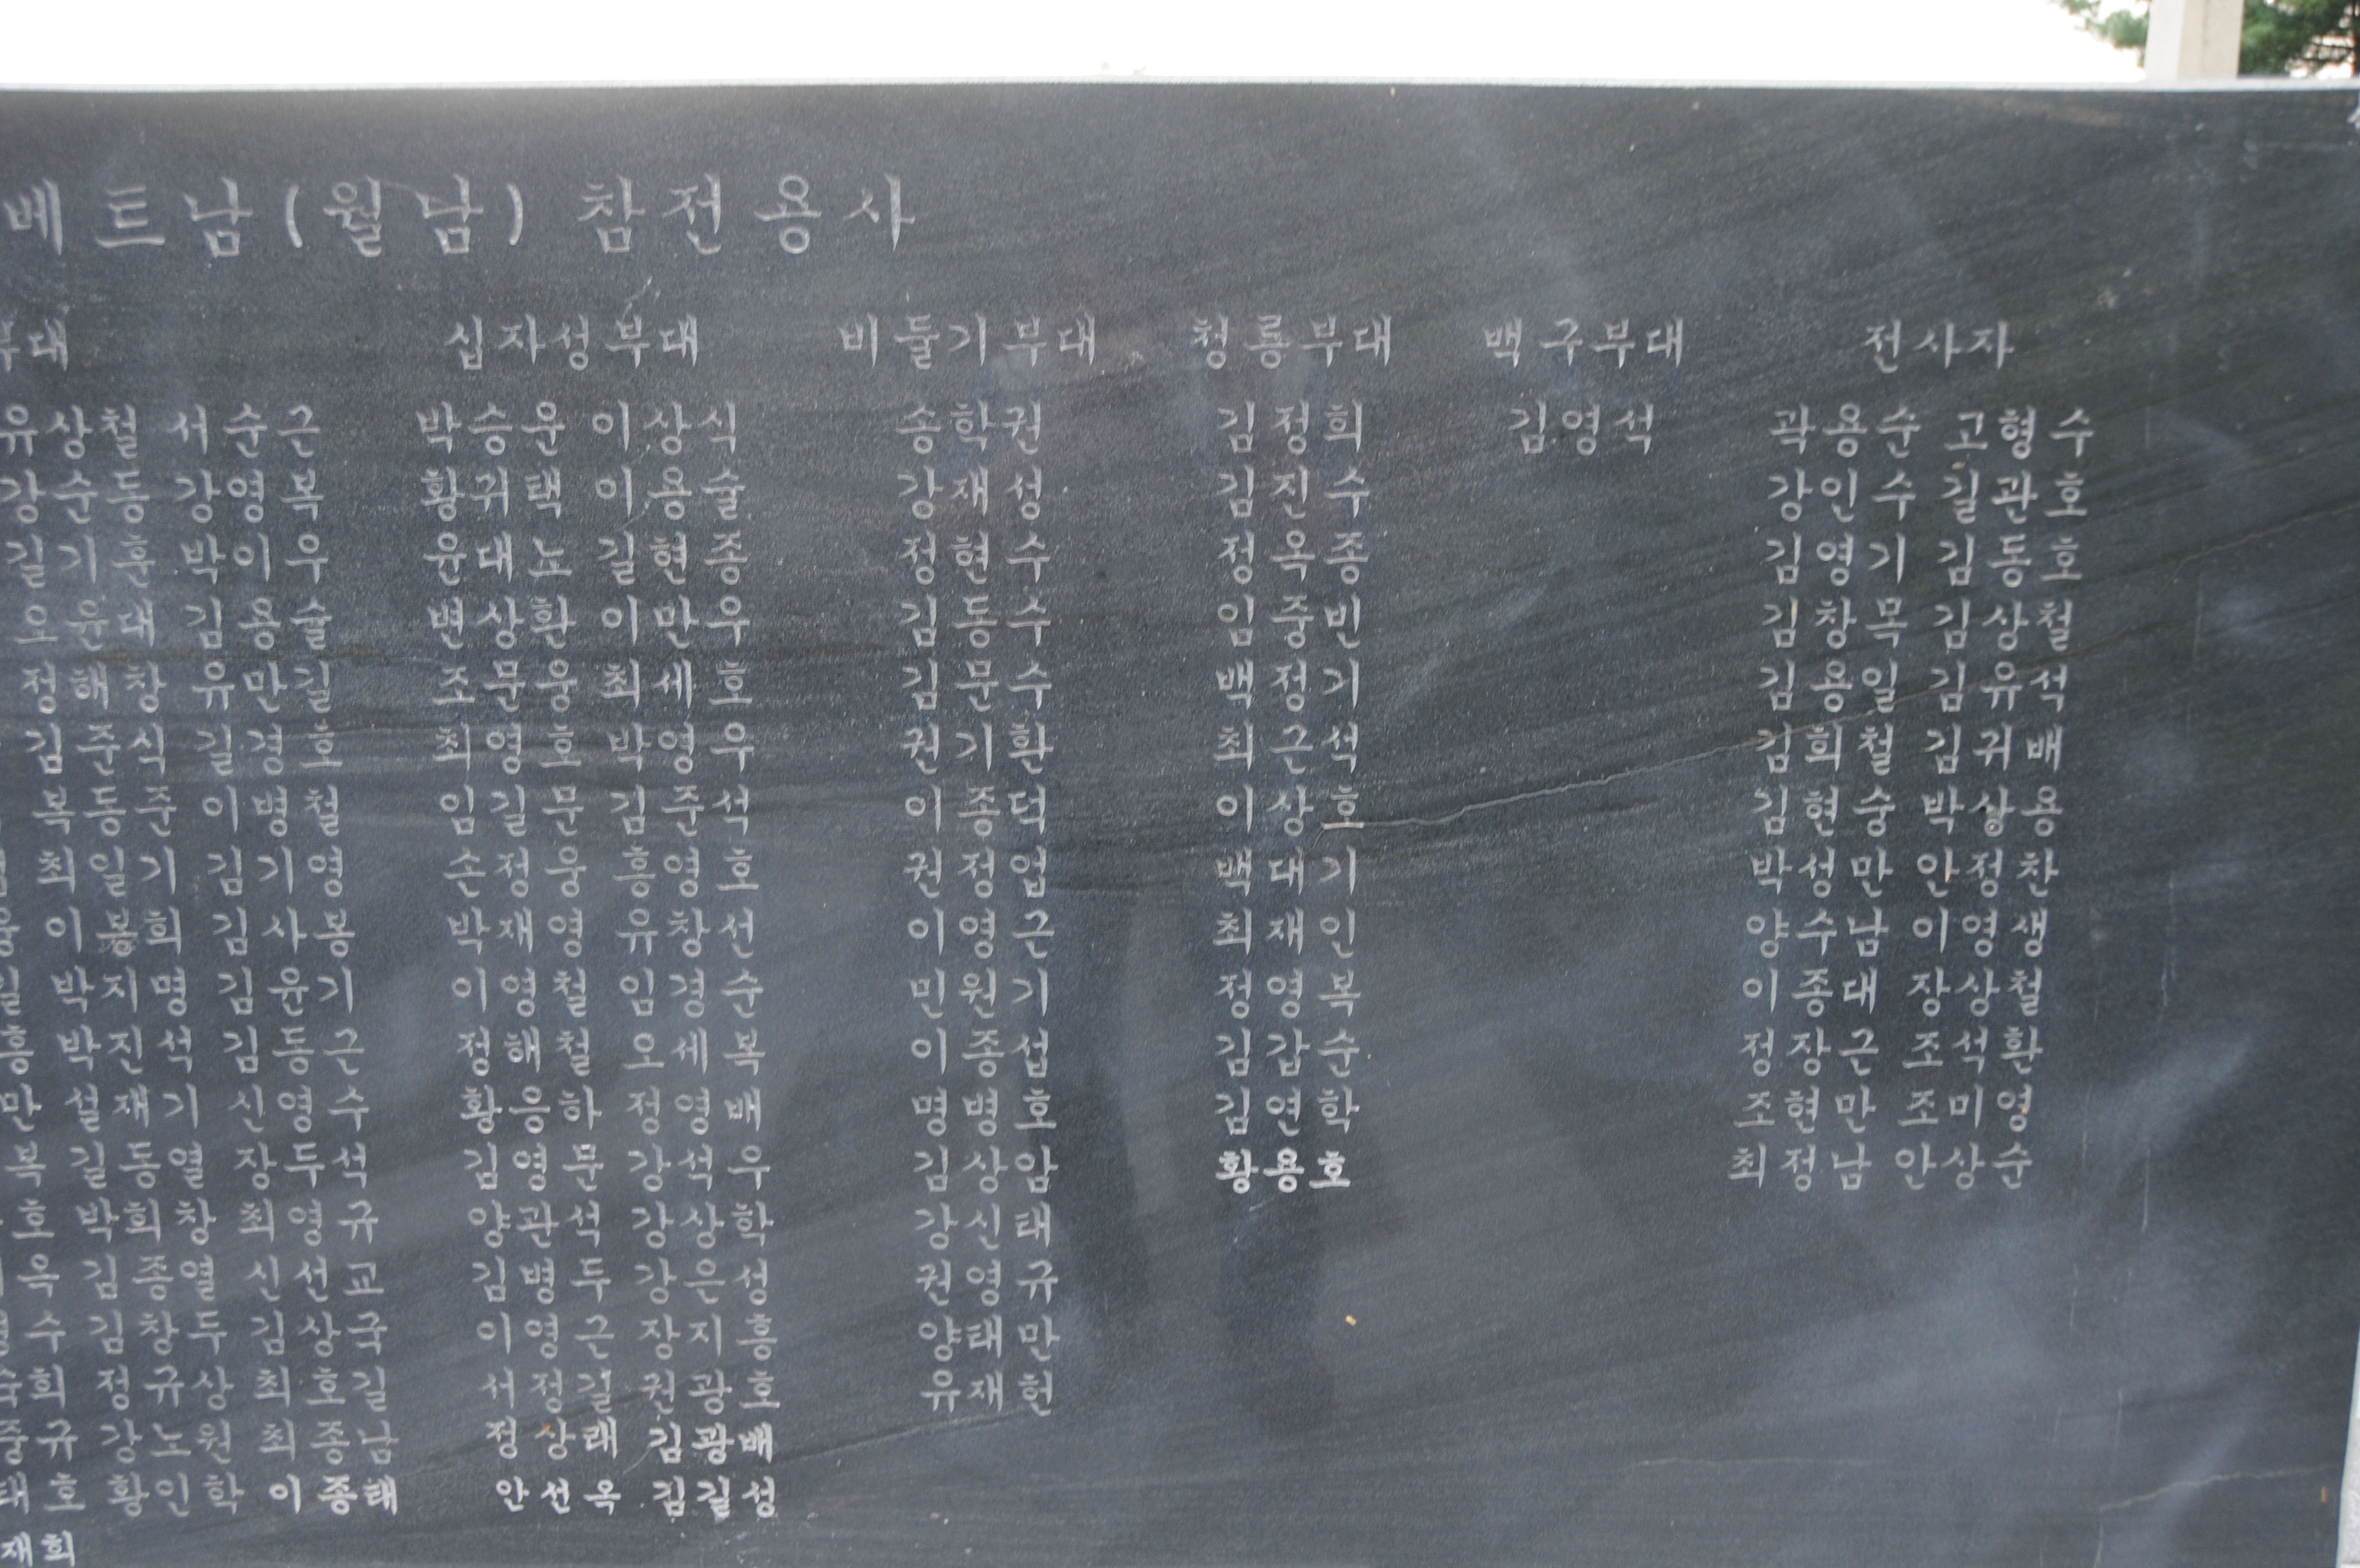 베트남(월남) 참전용사
부대 십자성부대 비둘기부대 청룡부대 백구부대 전사자
유상철 서순근 박승운 이상식 송학권 김정희 김영석 곽용순 고형수
강순동 강영복 황귀택 이용술 강재성 김진수 강인수 길관호
길기훈 박이우 윤대노 길현종 정현수 정옥종 김영기 김동호
오윤대 김용술 변상환 이만우 김동수 임중빈 김창목 김상철
정해창 유만길 조문웅 최세호 김문수 백정기 김용일 김유석
김준식 길경호 최영호 박영우 권기환 최근석 김희철 김귀배
복동준 이병철 임길문 김준석 이종덕 이상호 김현숭 박상용
최일기 김기영 손정웅 홍영호 권정업 백대기 박성만 안정찬
이봉희 김사봉 박재영 유창선 이영근 최재인 양수남 이영생
일 박지명 김윤기 이영철 임경순 민원기 정영복 이종대 장상철
흥 박진석 김동근 정해철 오세복 이종섭 김갑순 정장근 조석환
만 설재기 신영수 황응하 정영배 명병호 김연학 조현만 조미영
복 길동열 장두석 김영문 강석우 김상암 황용호 최정남 안상순
호 박희창 최영규 양관석 강상학 강신태
옥 김종열 신선교 김병두 강은성 권영규
수 김창두 김상국 이영근 장지흥 양태만
희 정규상 최호길 서정길 권광호 유재헌
중규 강노원 최종남 정상태 김광배
태호 황인학 이종태 안선옥 김길성
재희